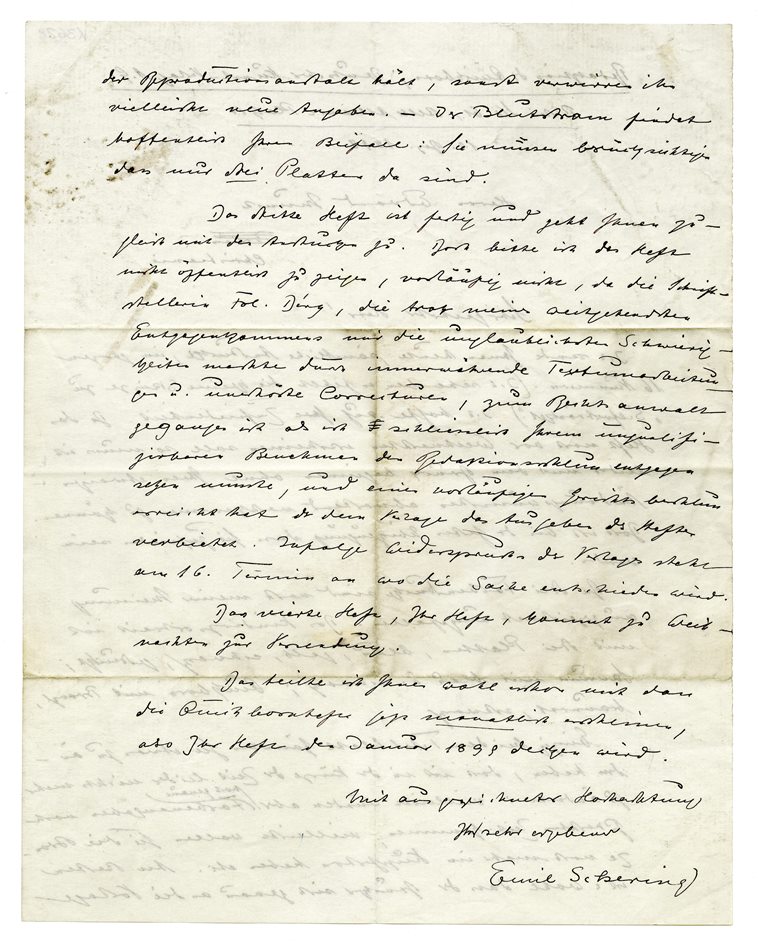 der Reproductionsanstalt hält, sonst verwirren ihn
vielleicht neue Angaben. – Der Blutstrom findet
hoffentlich Ihren Beifall: Sie müssen berücksichtigen
dass nur drei Platten da sind.
Das dritte Heft ist fertig und geht Ihnen zu-
gleich mit der zu. Doch bitte ich das Heft
nicht öffentlich zu zeigen, vorläufig nicht, da die Schrift-
stellerin Frl. , die trotz meines weitgehendsten
Entgegenkommens mir die unglaublichsten Schwierig-
keiten machte durch immerwährende Textumarbeitun-
gen u. unerhörte Correcturen, zum Rechtsanwalt
gegangen ist als ich schliesslich Ihrem unqualifi-
zirbaren Benehmen den Redaktionsschluss entgegen
setzen musste, und einen vorläufigen Gerichtsbeschluss
erreicht hat der dem Verlage das Ausgeben des Heftes
verbietet. Infolge Widerspruchs des Verlages steht
am 16. Termin an wo die Sache entschieden wird.
Das vierte Heft, Ihr Heft, kommt zu Weih-
nachten zur Versendung.
Das teilte ich Ihnen wohl schon mit dass
die Quickbornhefte jetzt monatlich erscheinen,
also Ihr Heft den Januar 1899 decken wird.
Mit ausgezeichneter Hochachtung
Ihr sehr ergebener
Emil Schering